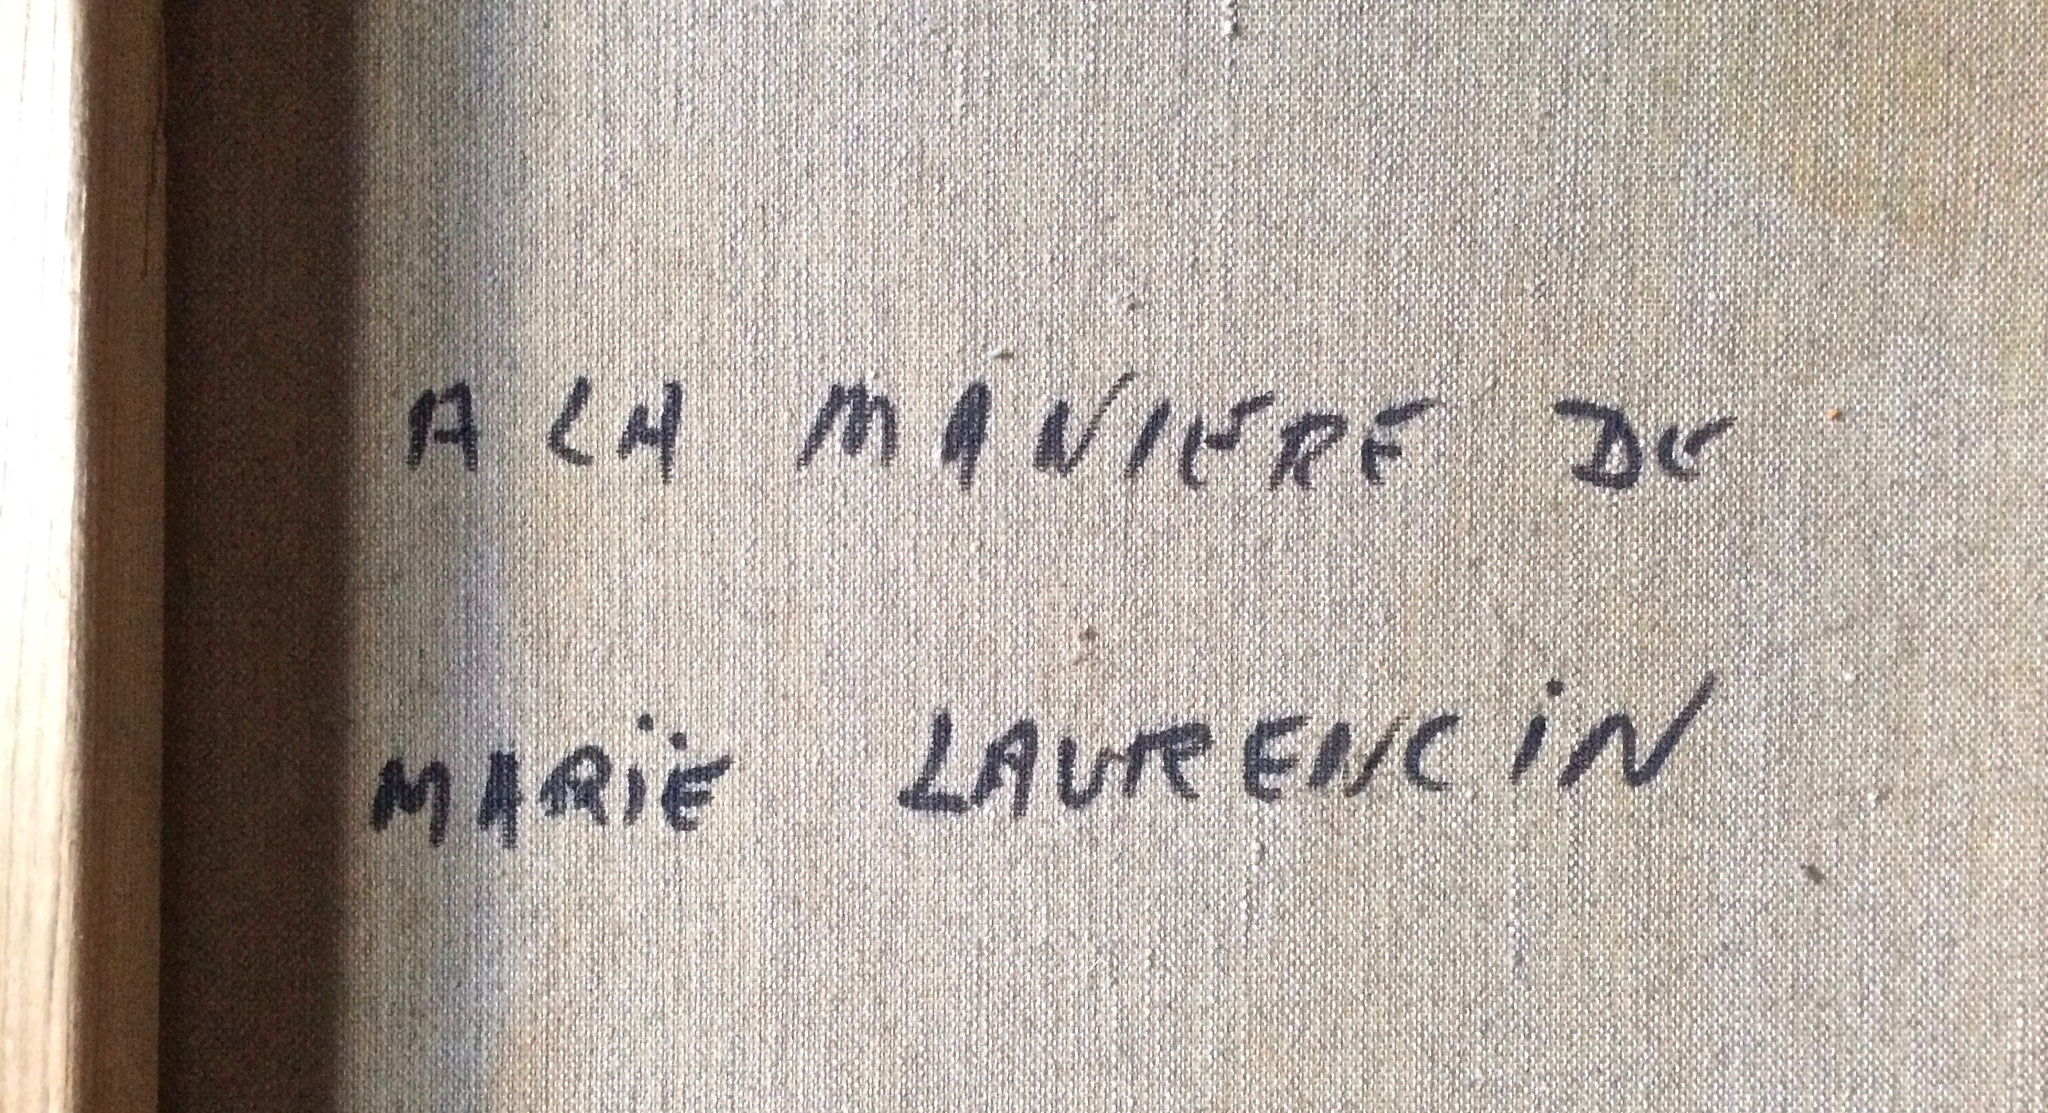 A LA MANIERE DE
MARiE LAURENCiN